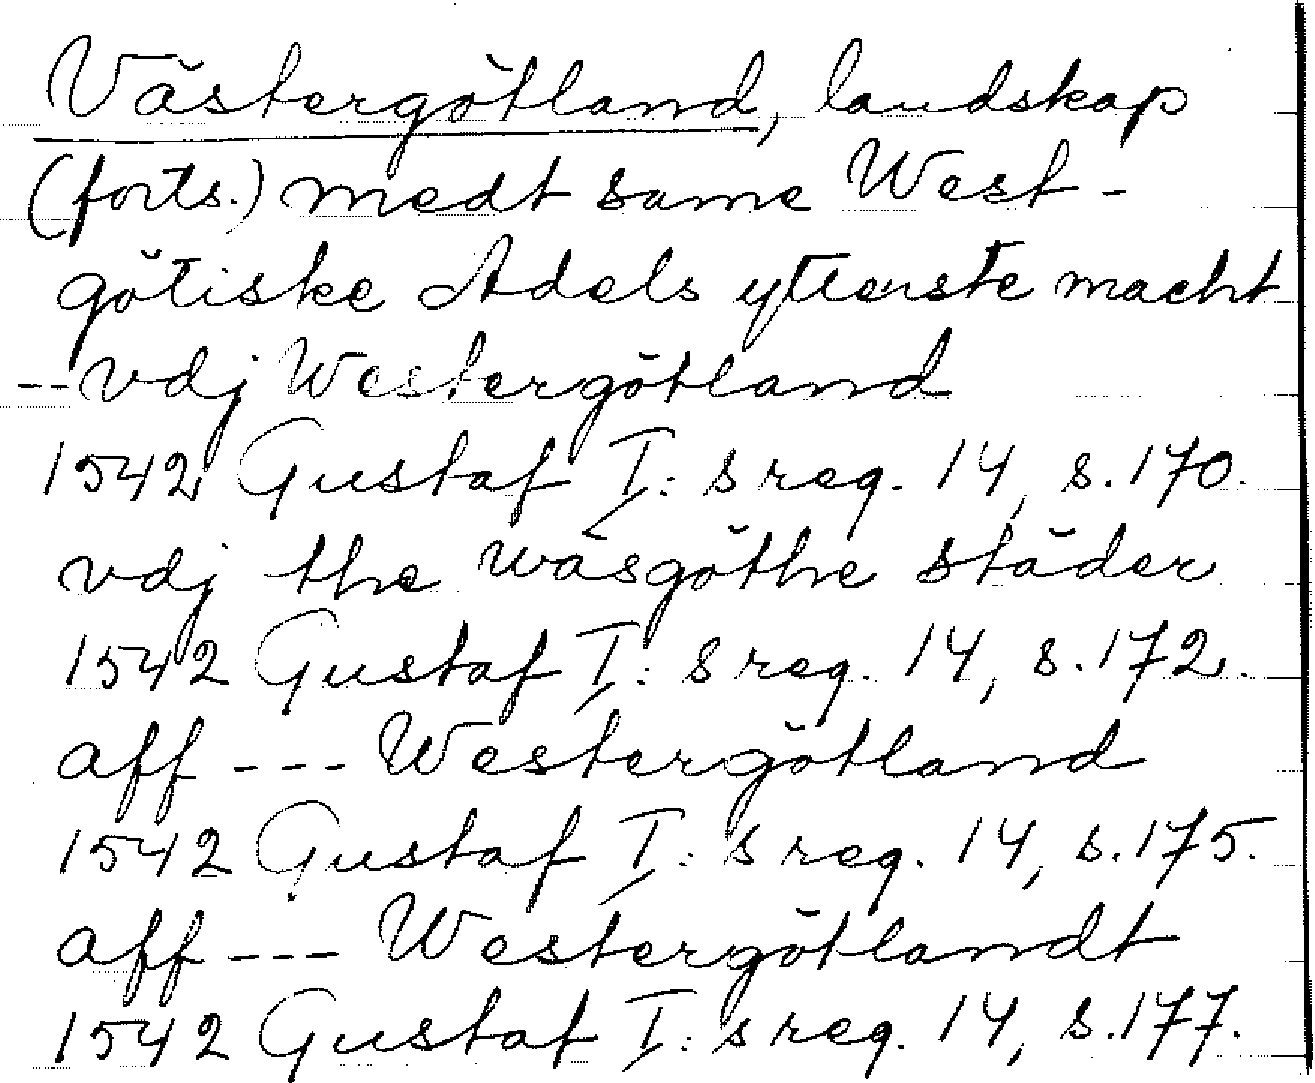 Västergötland, landskap
(forts.) medt same West-
götiske Adels ytterste macht
--vdj Westergötland
1542 Gustaf I: s reg. 14, s. 170.
vdj the wäsgöthe städer
1542 Gustaf I: s reg. 14, s. 172.
aff --- Westergötland
1542 Gustaf I: s reg. 14, s. 175.
aff --- Westergötlandt
1542 Gustaf I: s reg. 14, s. 177.